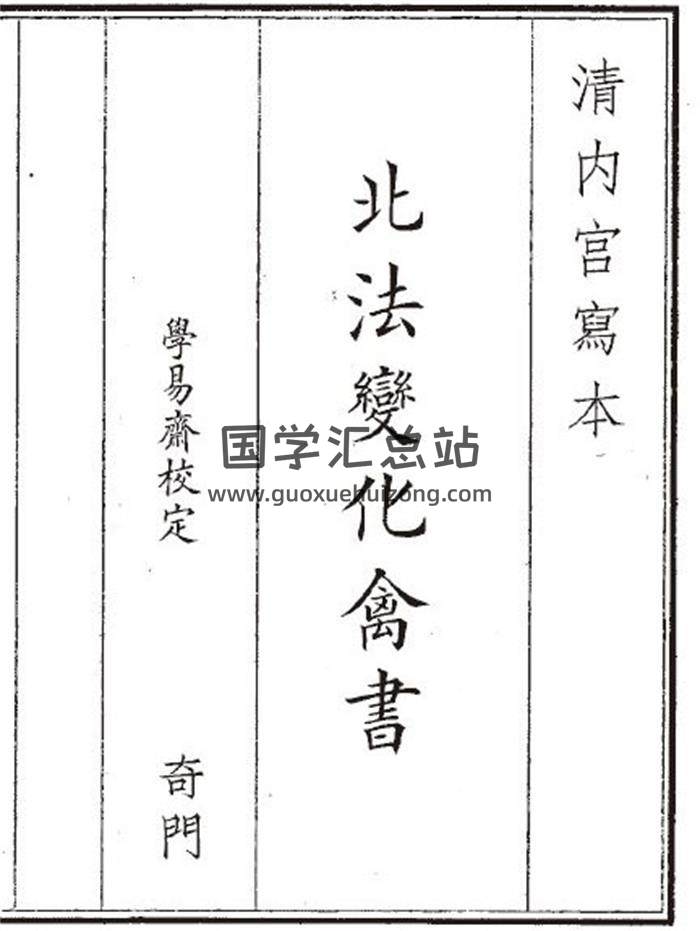 清内宫寫本
北法變化禽書
學易齋校定 奇門
国学汇总站
www.guoxuehuizong.com